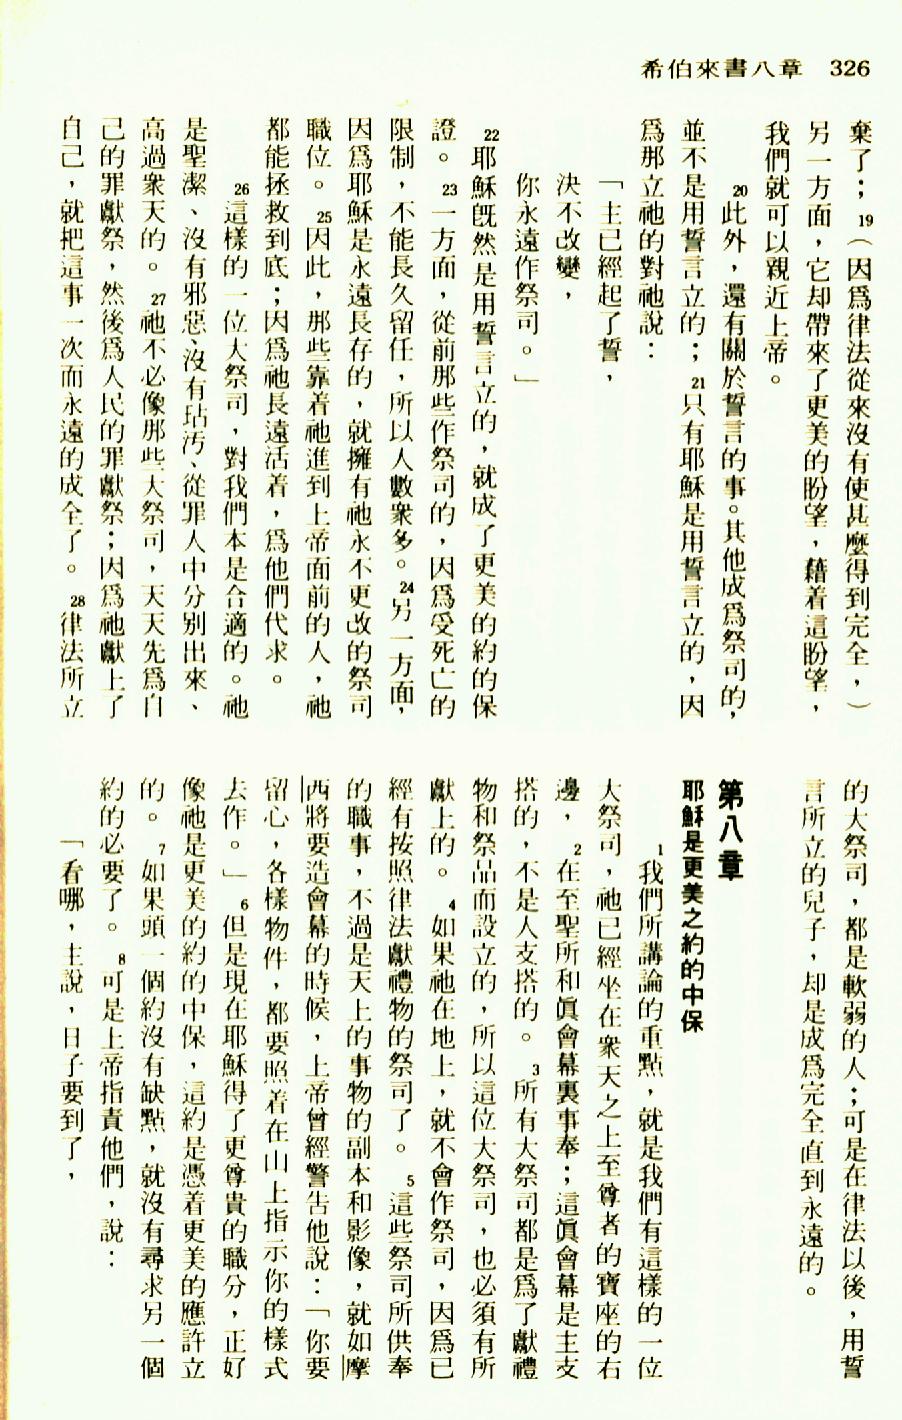 希伯來書八章　326
棄了；19（因爲律法從來沒有使甚麼得到完全，）
另一方面，它却帶來了更美的盼望，藉着這盼望，
我們就可以親近上帝。
20此外，還有關於誓言的事。其他成爲祭司的，
並不是用誓言立的；21只有耶穌是用誓言立的，因
爲那立祂的對祂說：
「主已經起了誓，
決不改變，
你永遠作祭司。」
22耶穌旣然是用誓言立的，就成了更美的約的保
證。23一方面，從前那些作祭司的，因爲受死亡的
限制，不能長久留任，所以人數衆多。24另一方面，
因爲耶穌是永遠長存的，就擁有祂永不更改的祭司
職位。25因此，那些靠着祂進到上帝面前的人，祂
都能拯救到底；因爲祂長遠活着，爲他們代求。
26這樣的一位大祭司，對我們本是合適的。祂
是聖潔、沒有邪惡、沒有玷汚、從罪人中分別出來、
高過衆天的。27祂不必像那些大祭司，天天先爲自
己的罪獻祭，然後爲人民的罪獻祭；因爲祂獻上了
自己，就把這事一次而永遠的成全了。28律法所立
的大祭司，都是軟弱的人；可是在律法以後，用誓
言所立的兒子，却是成爲完全直到永遠的。
第八章
耶穌是更美之約的中保
1我們所講論的重點，就是我們有這樣的一位
大祭司，祂已經坐在衆天之上至尊者的寶座的右
邊，2在至聖所和眞會幕裏事奉；這眞會幕是主支
搭的，不是人支搭的。3所有大祭司都是爲了獻禮
物和祭品而設立的，所以這位大祭司，也必須有所
獻上的。4如果祂在地上，就不會作祭司，因爲已
經有按照律法獻禮物的祭司了。5這些祭司所供奉
的職事，不過是天上的事物的副本和影像，就如摩
西將要造會幕的時候，上帝曾經警吿他說：「你要
留心，各樣物件，都要照着在山上指示你的樣式
去作。」6但是現在耶穌得了更尊貴的職分，正好
像祂是更美的約的中保，這約是憑着更美的應許立
的。7如果頭一個約沒有缺點，就沒有尋求另一個
約的必要了。8可是上帝指責他們，說：
「看哪，主說，日子要到了，